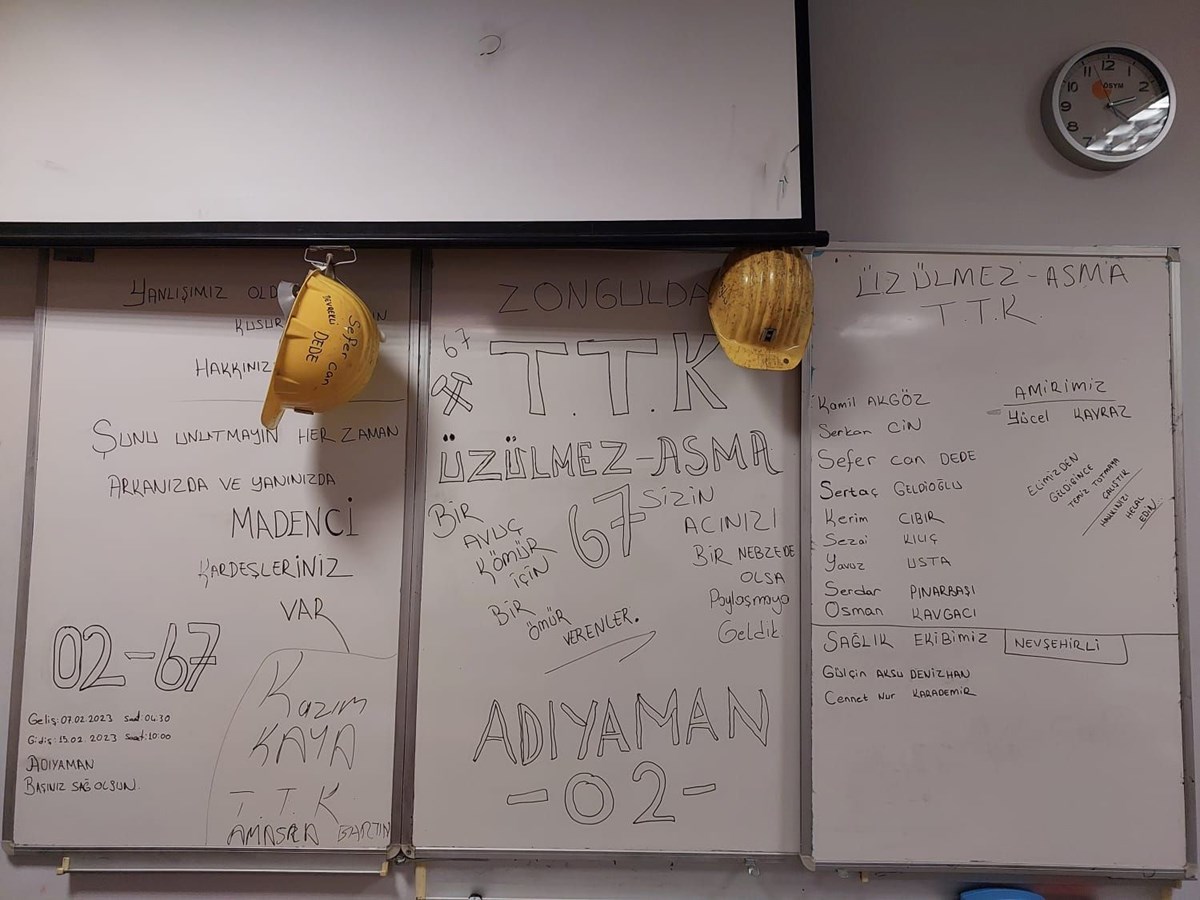 YANLIŞIMIZ
KUSUR
HAKKINIZ
ŞUNU UNUTMAYIN HER ZAMAN
ARKANIZDA VE YANINIZDA
MADENCİ
KARDEŞLERİNİZ
VAR
02-67
Geliş: 07.02.2023 saat: 04:30
Gidiş: 15.02.2023 Saat: 10:00
ADIYAMAN
BAŞINIZ SAĞ OLSUN.
Kazım
KAYA
T.T.K
AMASRA BARTIN
Sefer can
DEDE
ZONGULDA
67
T.T.K
ÜZÜLMEZ-ASMA
BİR
AVUÇ
KÖMÜR
İÇİN
BİR
ÖMÜR
VERENLER.
67
SİZİN
ACINIZI
BİR NEBZEDE
OLSA
Paylaşmaya
Geldik
ADIYAMAN
-02-
ÜZÜLMEZ-ASMA
T.T.K.
Kamil AKGÖZ
Serkan CİN
Sefer can DEDE
Sertaç GELDİOĞLU
Kerim CIBIR
Sezai KILIÇ
Yavuz USTA
Serdar PINARBAŞI
Osman KAVGACI
AMİRİMİZ
Yücel KAVRAZ
ELİMİZDEN
GELDİĞİNCE
TEMİZ TUTMAYA
ÇALIŞTIK
HAKKINIZI
HELAL
EDİN...
SAĞLIK EKİBİMİZ NEVŞEHİRLİ
Gülçin AKSU DENİZHAN
Cennet Nur KARADEMİR
ÖSYM
12
1
2
7
8
9
10
11